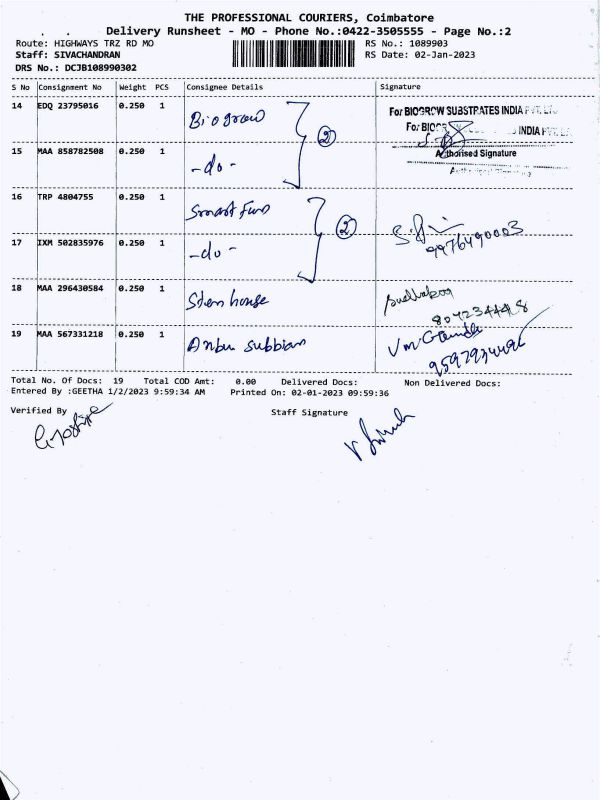 THE PROFESSIONAL COURIERS, Coimbatore
Delivery Runsheet - MO - Phone No.:0422-3505555 - Page No.:2
Route: HIGHWAYS TRZ RD MO RS No.: 1089903
Staff: SIVACHANDRAN RS Date: 02-Jan-2023
DRS No.: DCJB108990302
S No Consignment No Weight PCS Consignee Details Signature
14 EDQ 23795016 0.250 1 Biogrow 2 For BIOGROW SUBSTRATES INDIA PVT. LTD.
For INDIA
15 MAA 858782508 0.250 1 -do- Authorised Signature
16 TRP 4804755 0.250 1 Smart Funs 2
17 IXM 502835976 0.250 1 -do- 9976490003
18 MAA 296430584 0.250 1 Stem house
19 MAA 567331218 0.250 1 Anbu subbian
Total No. Of Docs: 19 Total COD Amt: 0.00 Delivered Docs: Non Delivered Docs:
Entered By :GEETHA 1/2/2023 9:59:34 AM Printed On: 02-01-2023 09:59:36
Verified By Staff Signature